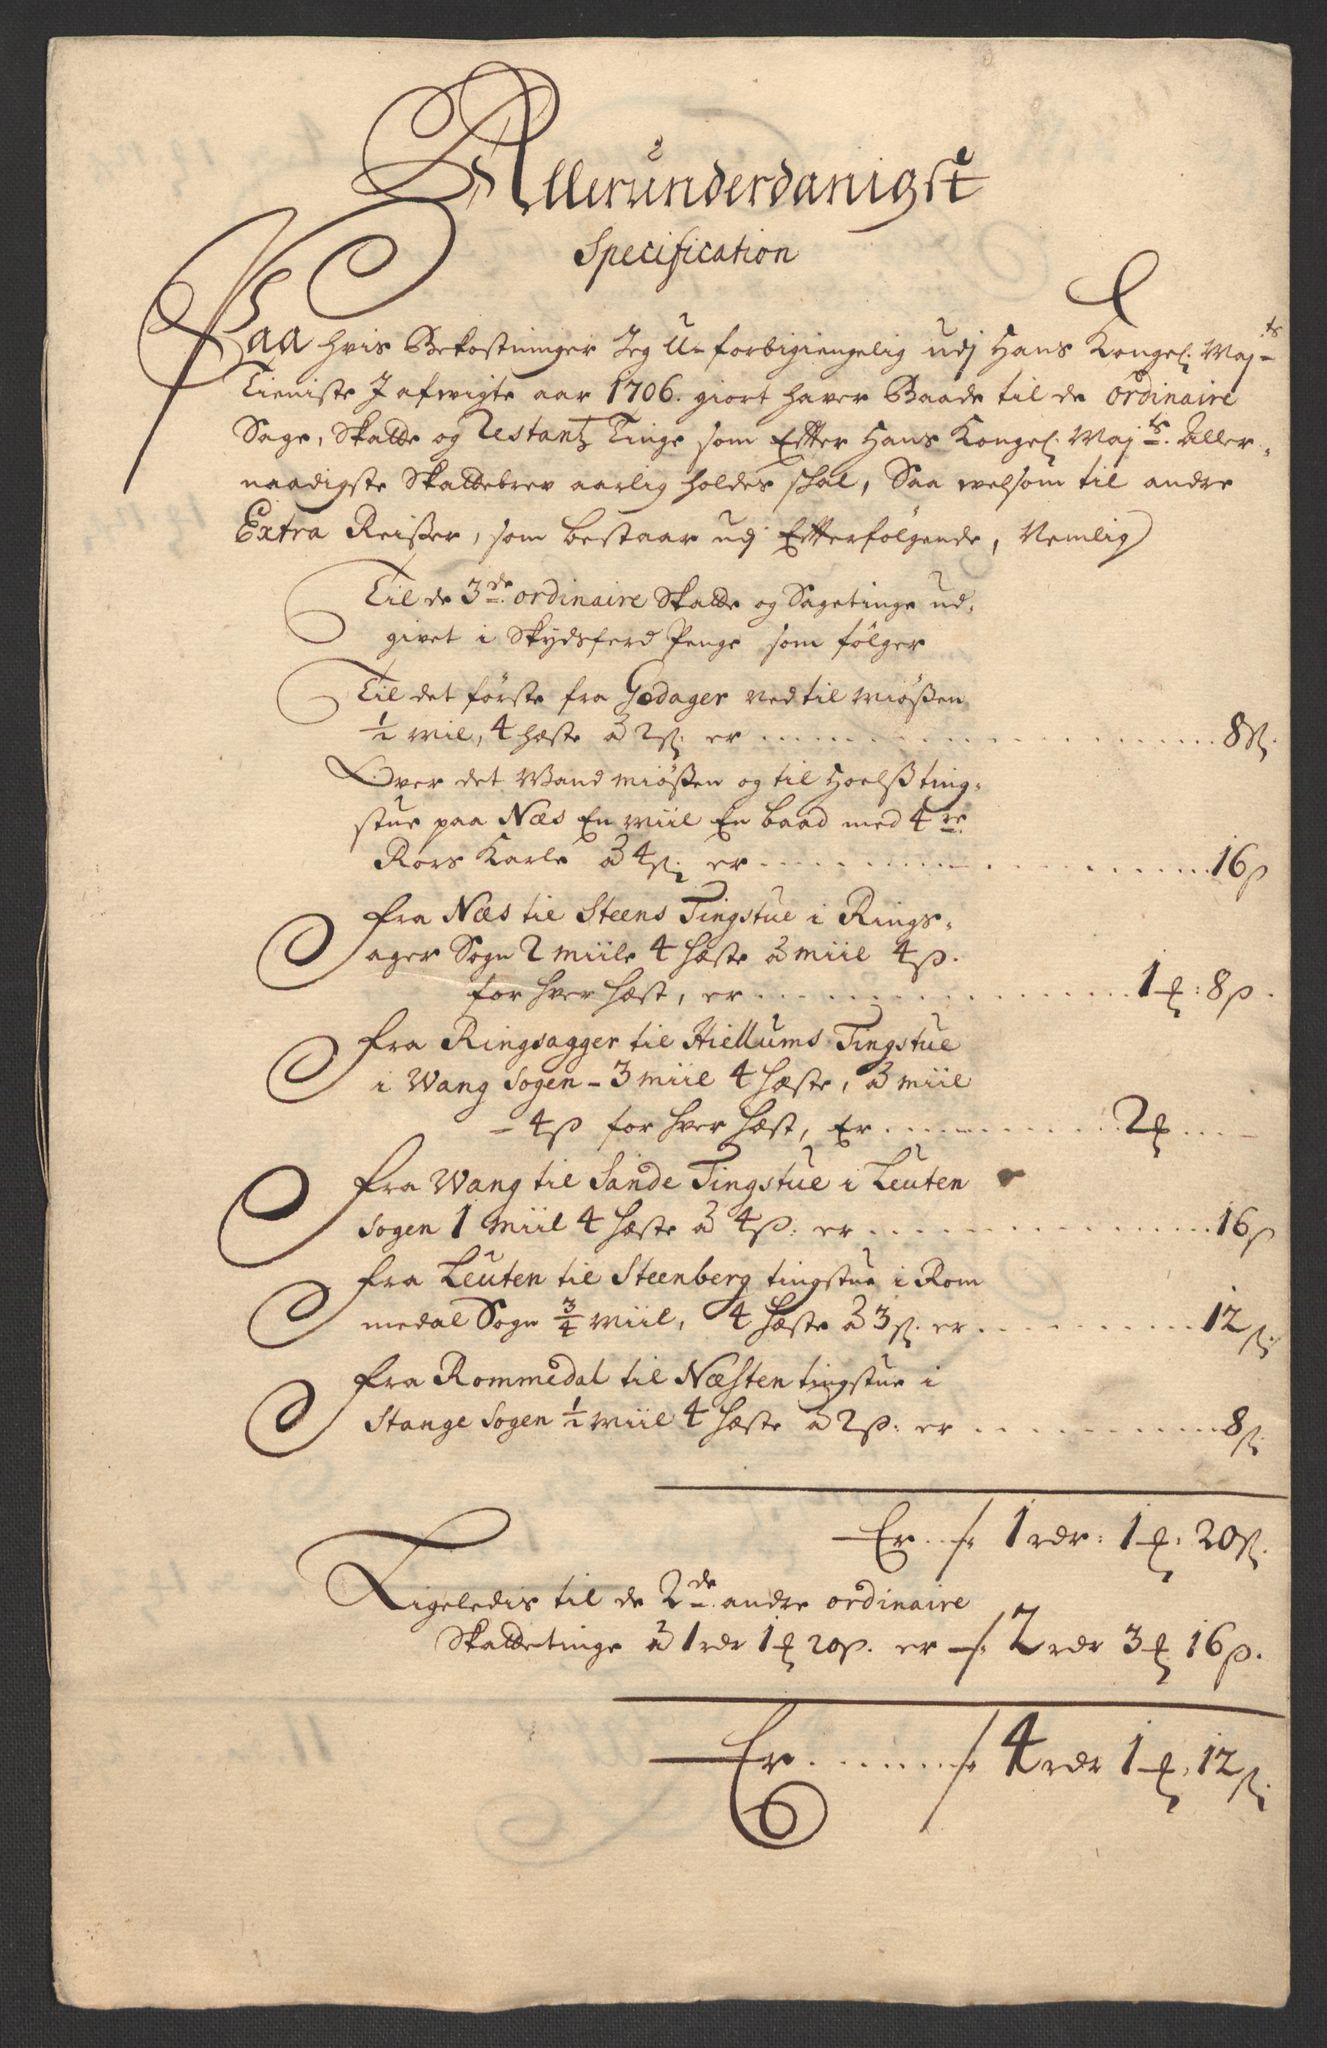 Allerunderdanigst
Specification
Paa hvis Bekostninger Jeg U-forbigiengelig udj Hans Kongel. Maj:ts
Tieniste J afwigte aar 1706. giort haver Baade til de ordinaire
Sage, Skatte og Restantz Tinge som Efter Hans Kongel. Maj:ts. Aller-
naadigste Skattebrev aarlig holdes schal, Saa velsom til andre
Extra Reisser, som bestaar udj Efterfølgende, Nemlig
Til de 3de ordinaire Skatte og Sagetinge ud-
givet i Skydsferd Penge som følger
Til det første fra Godager ved til Miøssen
1/2 Mil, 4 hæste à 2 s; er 8 s;
Over det Wand Miøssen og til Hoelss ting-
stue paa Næs En miil En baad med 4re
Rors Karle à 4 s; er 16 s
fra Næs til Steens Tingstue i Rings-
ager Sogn 2 miile 4 hæste à miil 4 s.
for hver hæst, er 1 ℔: 8 s.
fra Ringsagger til Hiellums Tingstue
i Wang Sogen - 3 miil 4 hæste, à miil
- 4 s for hver hæst, Er 2 ℔
fra Wang til Sande Tingstue i Leuten
Sogen 1 miil 4 hæste à 4 s: er 16 s
fra Leuten til Steenberg tingstue i Rom
medal Sogn 3/4 Miil, 4 hæste à 3 s; er 12 s;
fra Rommedal til Næsten tingstue i
Stange Sogen 1/2 Miil 4 hæste à 2 s: er 8 s;
Er 1 rdr: 1 ℔: 20 s;
Ligeledis til de 2de andre ordinaire
Skattetinge à 1 rdr 1 ℔ 20 s. er 2 rdr 3 ℔ 16 s.
Er 4 rdr 1 ℔: 12 s;